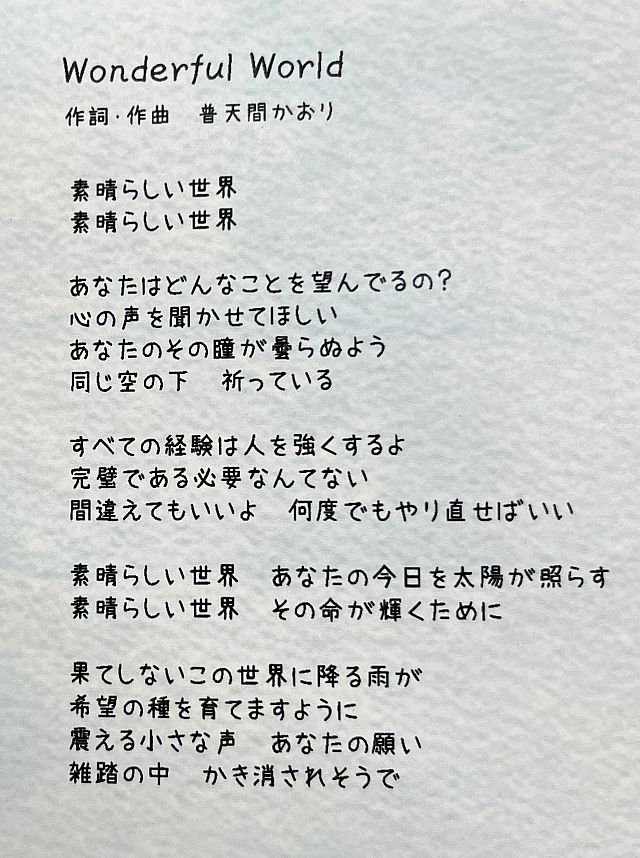 Wonderful World
作詞・作曲　普天間かおり
素晴らしい世界
素晴らしい世界
あなたはどんなことを望んでるの？
心の声を聞かせてほしい
あなたのその瞳が曇らぬよう
同じ空の下　祈っている
すべての経験は人を強くするよ
完璧である必要なんてない
間違えてもいいよ　何度でもやり直せばいい
素晴らしい世界　あなたの今日を太陽が照らす
素晴らしい世界　その命が輝くために
果てしないこの世界に降る雨が
希望の種を育てますように
震える小さな声　あなたの願い
雑踏の中　かき消されそうで